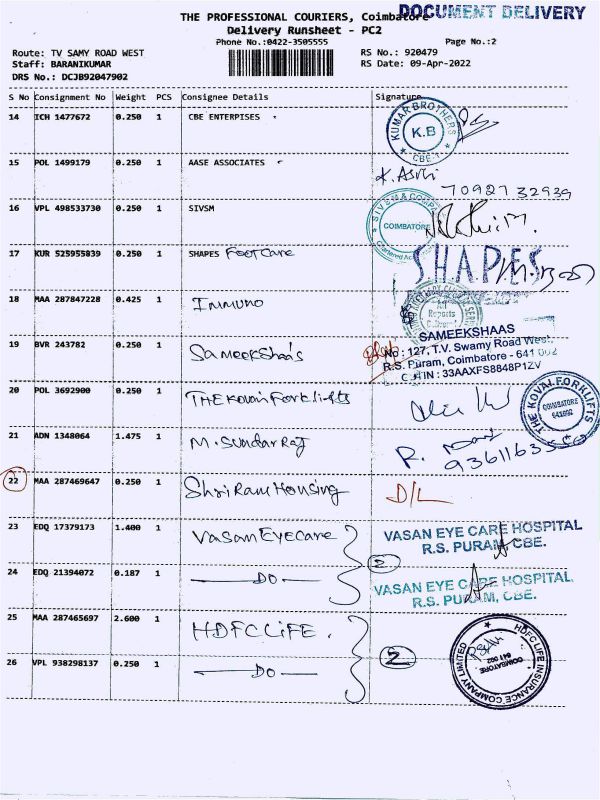 DOCUMENT DELIVERY
THE PROFESSIONAL COURIERS, Coimbatore
Delivery Runsheet - PC2
Phone No.:0422-3505555
Page No.:2
Route: TV SAMY ROAD WEST
RS No.: 920479
Staff: BARANIKUMAR
RS Date: 09-Apr-2022
DRS No.: DCJB92047902
S No Consignment No Weight PCS Consignee Details Signature
14 ICH 1477672 0.250 1 CBE ENTERPISES
KUMAR BROTHERS
K.B
CBE-1
15 POL 1499179 0.250 1 AASE ASSOCIATES
7092732939
16 VPL 498533730 0.250 1 SIVSM
SIVSM & COMPANY
COIMBATORE
17 KUR 525955839 0.250 1 SHAPES Footcare
S.H.A.P.E.S
18 MAA 287847228 0.425 1 Immuno
19 BVR 243782 0.250 1 Sameekshaa's
SAMEEKSHAAS
No : 127, T.V. Swamy Road West,
R.S. Puram, Coimbatore - 641 002
GSTIN : 33AAXFS8848P1ZV
20 POL 3692900 0.250 1 THE Kovai Forklifts
THE KOVAI FORKLIFTS
COIMBATORE
641002
21 ADN 1348064 1.475 1 M. Sundar Raj
22 MAA 287469647 0.250 1 Shri Ram Housing D/L
23 EDQ 17379173 1.400 1 Vasan Eye Care
VASAN EYE CARE HOSPITAL
R.S. PURAM, CBE.
2
24 EDQ 21394072 0.187 1 DO
VASAN EYE CARE HOSPITAL
R.S. PURAM, CBE.
25 MAA 287465697 2.600 1 HDFC LIFE.
2
HDFC LIFE INSURANCE COMPANY LIMITED
COIMBATORE
641 002
26 VPL 938298137 0.250 1 DO